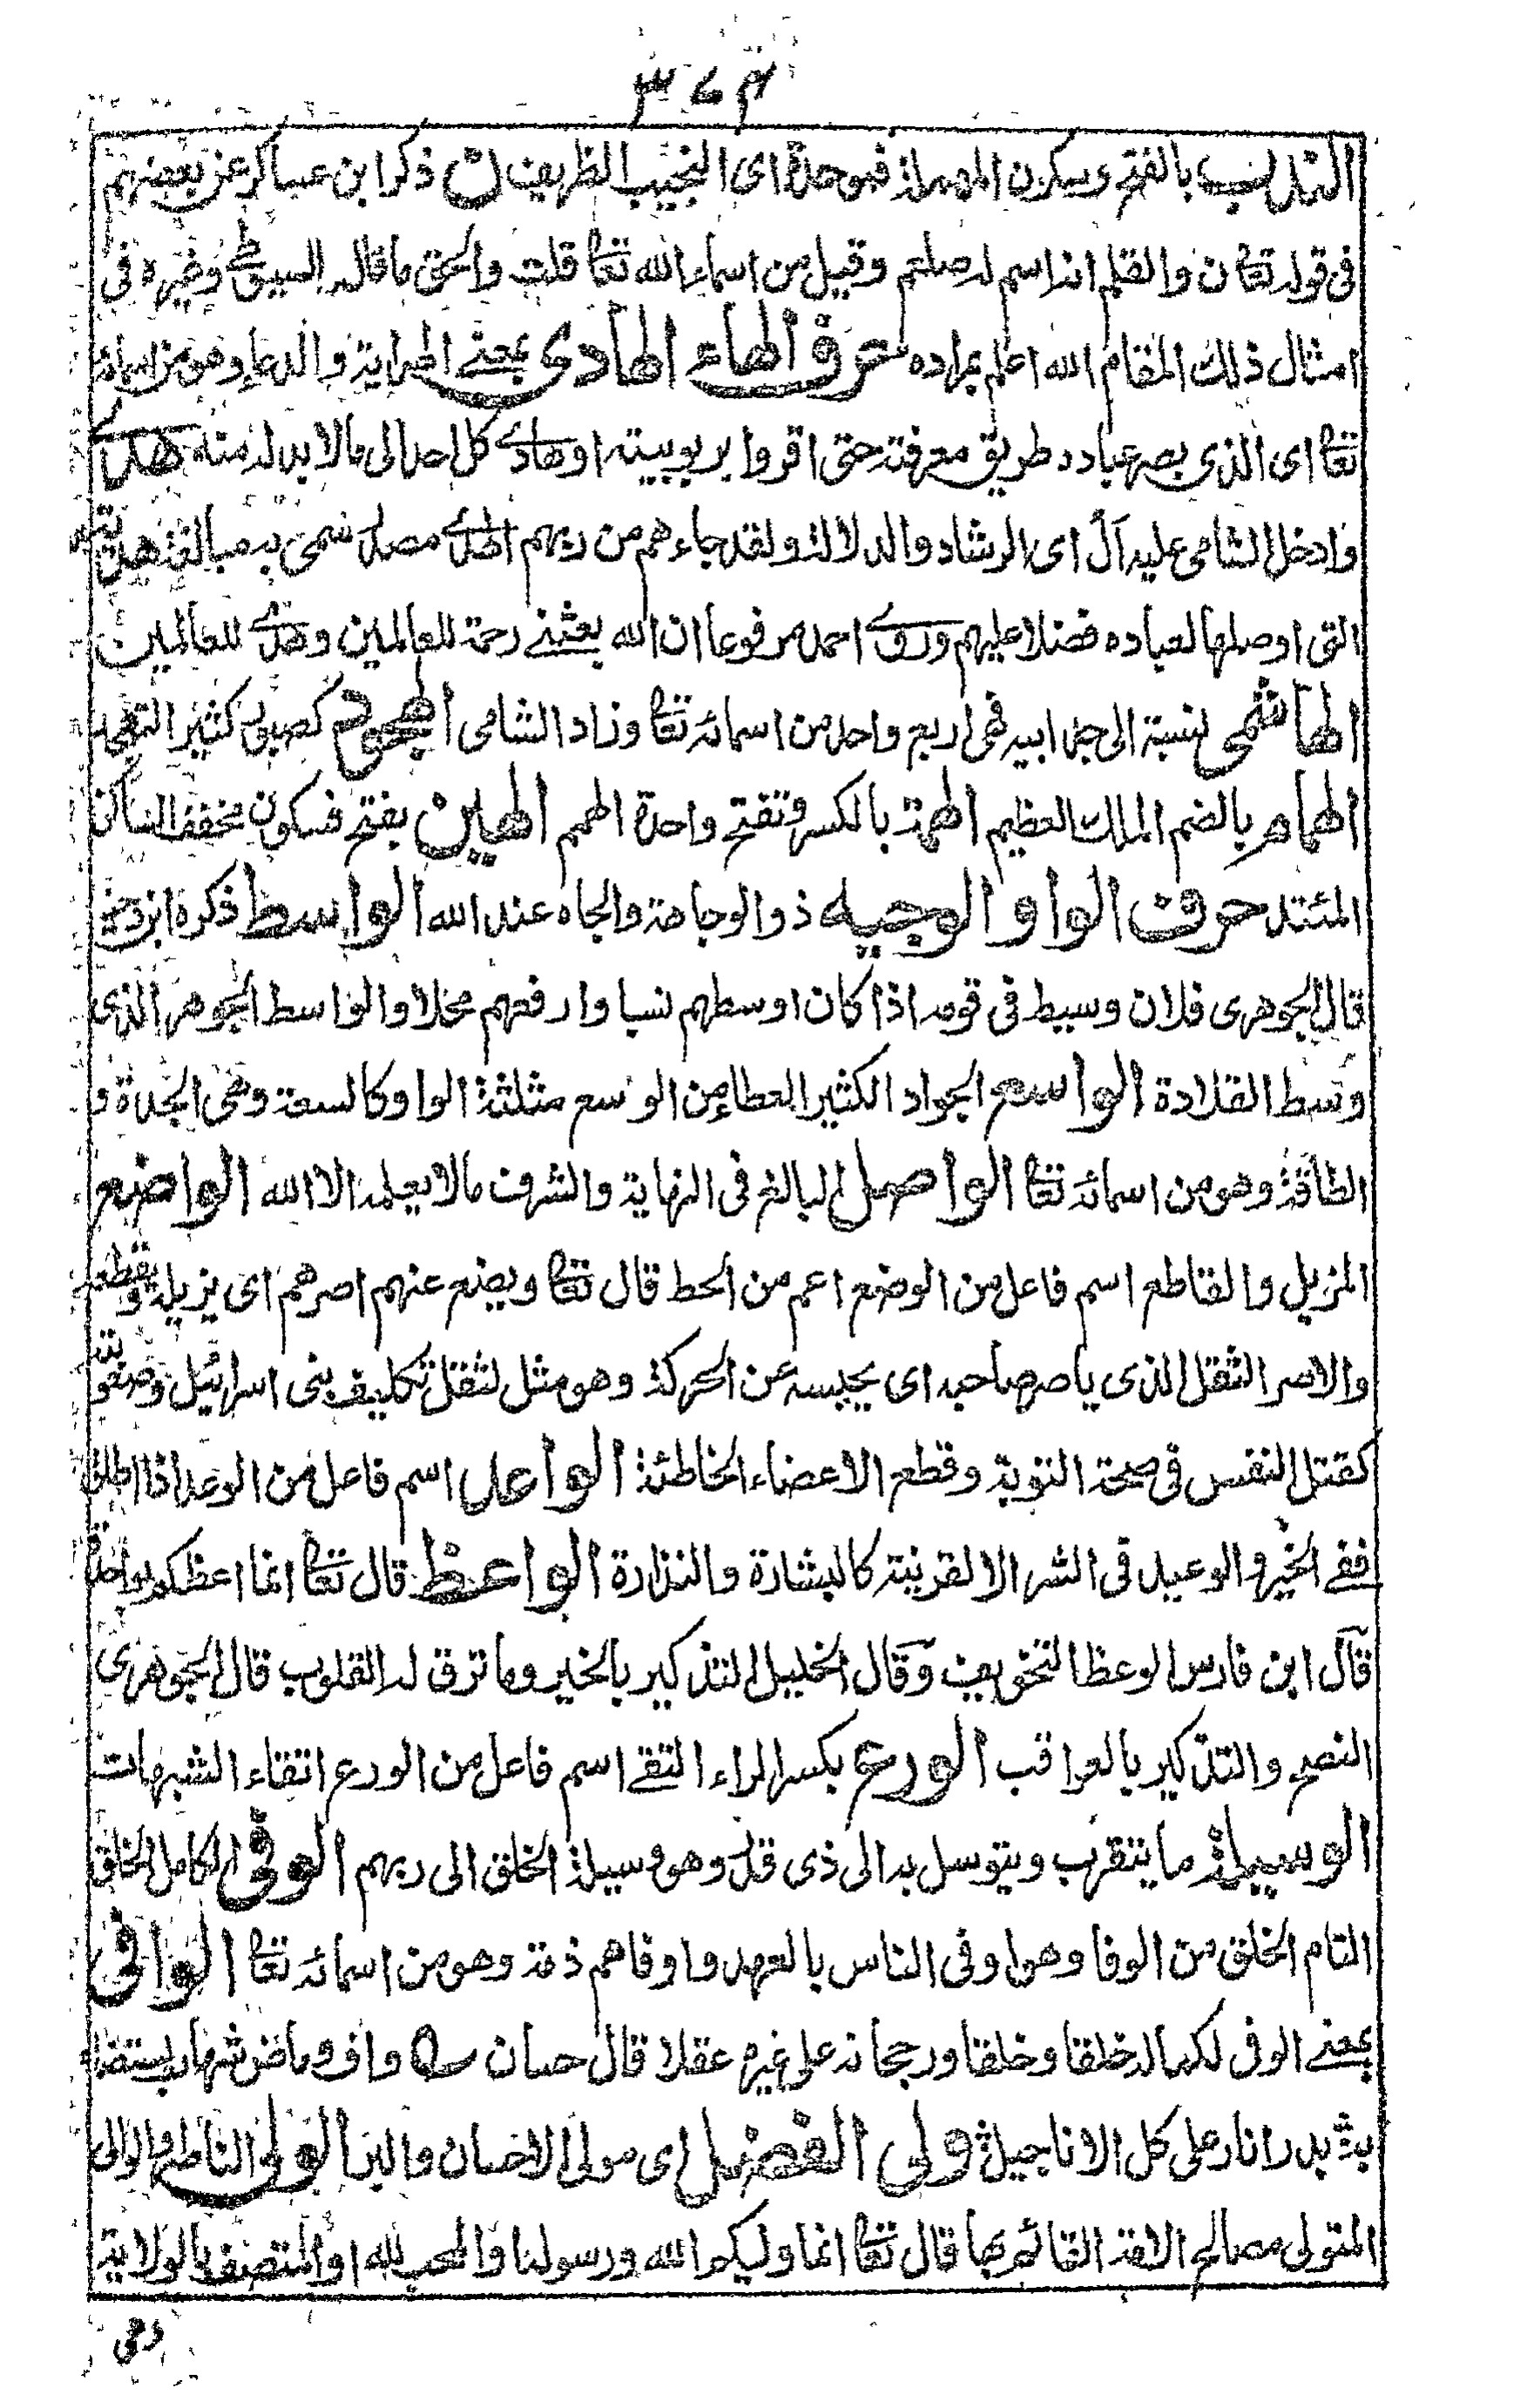 ٣٤٣
الندب بالفتح وسكون المهملة فموحدة اى النجيب الظريف ن ذكر ابن عساكر عن بعضهم
فى قوله تعا ن والقلم انه اسم له صلعم وقيل من اسماء الله تعا قلت والحق ما قاله السيوطى وغيره فى
امثال ذلك المقام الله اعلم بمراده حرف الهاء الهادى بمعنے الهداية والدعاء وهو من اسمائه
تعا اى الذى بصر عباده طريق معرفته حتى اقروا بربوبيته او هادى كل احد الى ما لا بد له منه هدى
وادخل الشامى عليه آل اى الرشاد والدلالة ولقد جاءهم من ربهم الهدى مصدر سمى به مبالغة هدية
التى اوصلها لعباده فضلا عليهم وروى احمد مرفوعا ان الله بعثنے رحمة للعالمين وهدى للعالمين
الهاشمى نسبة الى جد ابيه فهى اربع واحد من اسمائه تعا وزاد الشامى الهجود كصبور كثير التهجد
الهمام بالضم الملك العظيم الهمة بالكسر وتفتح واحدة الهمم الهين بفتح فسكون مخفف الساكن
المئتد حرف الواو الوجيه ذو الوجاهة والجاه عند الله الواسط ذكره ابن دحية
قال الجوهرى فلان وسيط فى قومه اذا كان اوسطهم نسبا وارفعهم محلا والواسط الجوهر الذى
وسط القلادة الواسع الجواد الكثير العطاء من الوسع مثلثة الواو كالسعة وهى الجدة و
الطاقة وهو من اسمائه تعا الواصل البالغ فى النهاية والشرف ما لا يعلمه الا الله الواضع
المزيل والقاطع اسم فاعل من الوضع اعم من الحط قال تعا ويضع عنهم اصرهم اى يزيله ويقطعه
والاصر الثقل الذى ياصر صاحبه اى يحبسه عن الحركة وهو مثل لثقل تكليف بنى اسرائيل وصعوبته
كقتل النفس فى صحة التوبة وقطع الاعضاء الخاطئة الواعد اسم فاعل من الوعد اذا اطلق
ففے الخير والوعيد فى الشر الا لقرينة كالبشارة والنذارة الواعظ قال تعا انما اعظكم بواحدة
قال ابن فارس الوعظ التخويف وقال الخليل التذكير بالخير وما ترق له القلوب قال الجوهرى
النصح والتذكير بالعواقب الورع بكسر الراء التقے اسم فاعل من الورع اتقاء الشبهات
الوسيلة ما يتقرب ويتوسل به الى ذى قدر وهو وسيلة الخلق الى ربهم الوفى الكامل الخلق
التام الخلق من الوفا وهو اوفى الناس بالعهد واوفاهم ذمة وهو من اسمائه تعا الوافى
بمعنے الوفى لكماله خلقا وخلقا ورجحانه على غيره عقلا قال حسان واف وماض شهاب يستضاء
به بدر انار على كل الاناجيل ولى الفضل اى مولى الاحسان والبر الولى الناصر والوالى
المتولى مصالح الامة القائم بها قال تعا انما وليكم الله ورسوله والمحب لله او المتصف بالولاية
وهى